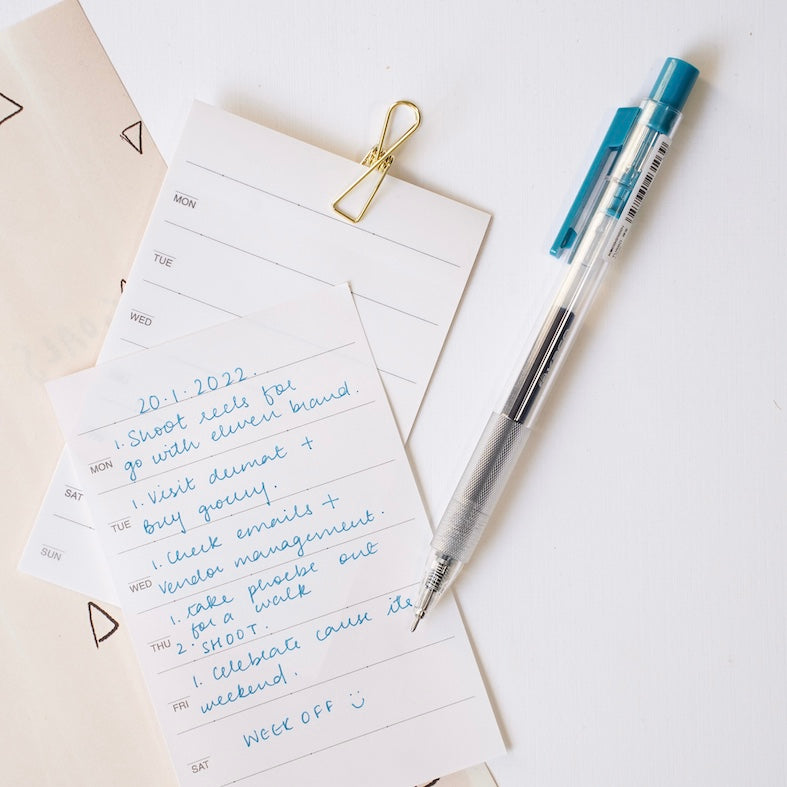 MON
TUE
WED
SAT
SUN
20.1.2022.
1. Shoot reels for
go with eleven brand.
MON
1. Visit dermat +
Buy grocery.
TUE
1. Check emails +
Vendor management.
WED
1. take phoebe out
for a walk
THU
2. SHOOT.
1. Celebrate cause its
weekend.
FRI
WEEK OFF :)
SAT